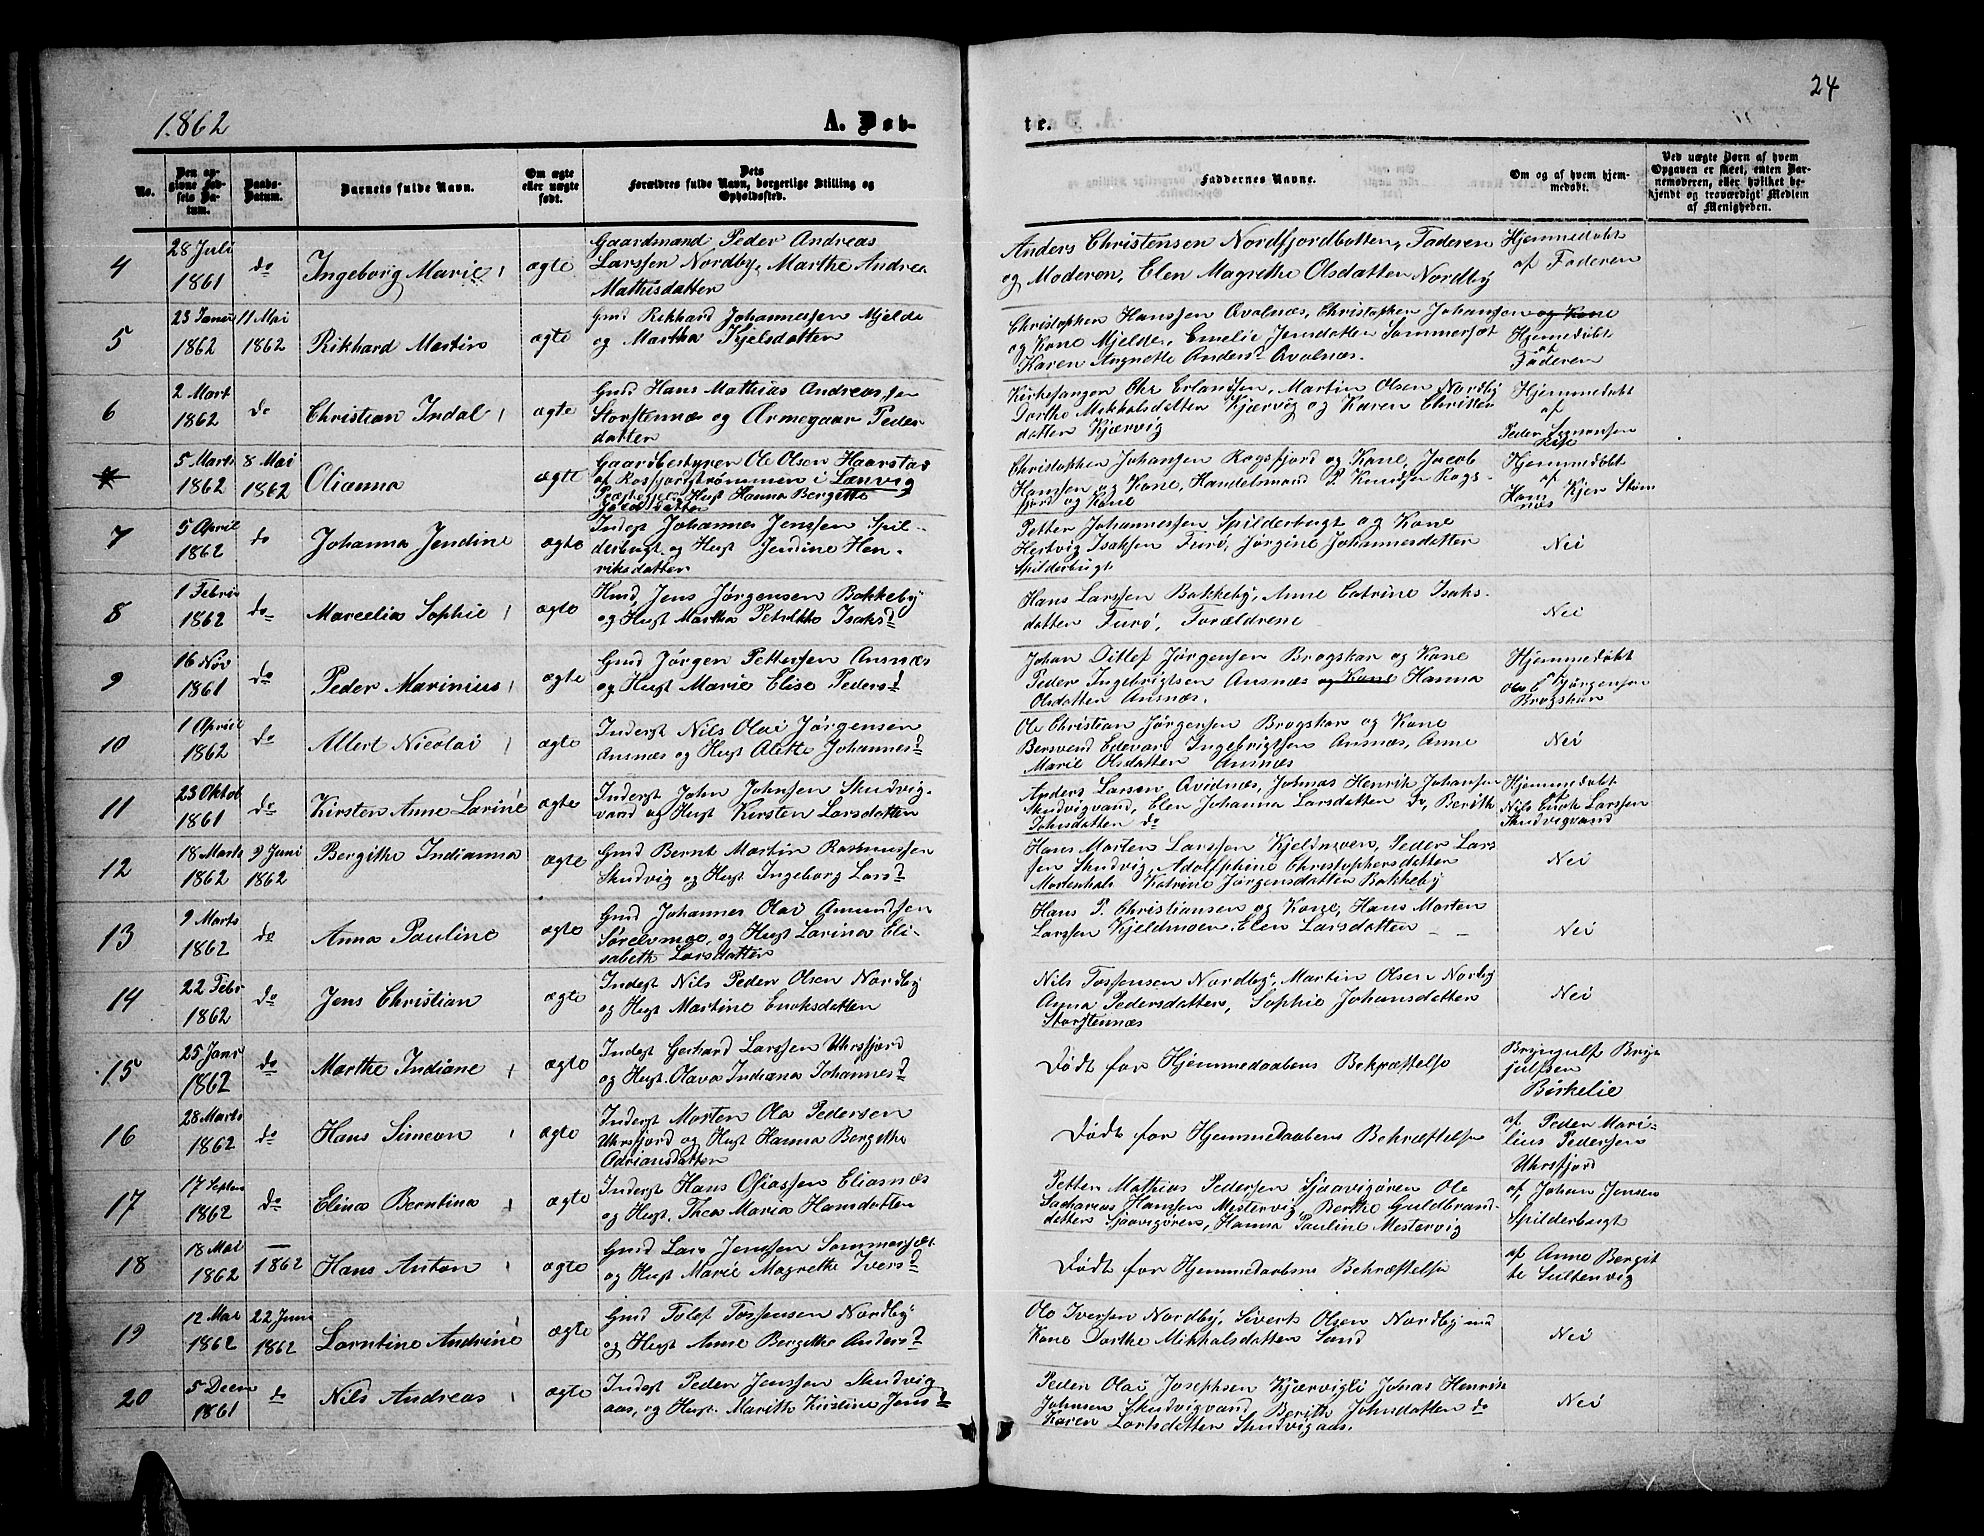 24
1862
A. Døb-
te.
No.
Den an-
givne Fød-
sels Da-
tum.
Daabs-
Datum.
Barnets fulde Navn.
Om ægte
eller uægte
født.
Dets
Forældres fulde Navn, borgerlige Stilling og
Opholdssted.
Faddernes Navne.
Om og af hvem hjem-
medøbt.
Ved uægte Børn af hvem
Opgaven er skeet, enten Bar-
nemoderen, eller hvilket be-
kjendt og troværdigt Medlem
af Menigheden.
4
28 Juli
1861
do
Ingeborg Marie
ægte
Gaardmand Peder Andreas
Larssen Nordby, Marthe Andrea
Mathisdatter
Anders Christensen Nordfjordbotten, Faderen
og Moderen, Elen Magrethe Olsdatter Nordby
Hjemmedøbt
af Faderen
5
23 Januar
1862
11 Mai
1862
Rikhard Martin
ægte
Gmd Rikhard Johannessen Mjelde
og Martha Kjelsdatter
Christopher Hanssen Avalnæs, Christopher Johansen og Kone
og Kone Mjelde, Emelie Jensdatter Sommersæt
Karen Angnette Anders Avalnæs.
Hjemmedøbt
af
Faderen
6
2 Mart
1862
do
Christian Indal
ægte
Gmd Hans Mathias Andreassen
Storstennæs og Armegaar Peder
datter
Kirkesanger Chr Erlandsen, Martin Olsen Nordby
Dorthe Mikkalsdatter Kjærvig og Karen Christen
datter Kjærvig
Hjemmedøbt
af
Peder Simonsen
5 Marts
1862
8 Mai
1862
Olianna
ægte
Gaardbestyrer Ole Olsen Haarstad
af Rossfjordstrømmen i Lænvig
Præstegjæld og Hust Hanna Bergitte
Jacobsdatter
Christopher Johansen Rogsfjord og Kone, Jacob
Hanssen og Kone, Handelsmand P Knudsen Rogs-
fjord og Kone
Hjemmedøbt
af
Hans Kjer Strøm
næs
7
5 April
1862
do
Johanna Jendine
ægte
Inderst Johannes Jenssen Spil-
derbugt og Hust Jendine Hen-
riksdatter
Petter Johannessen Spilderbugt og Kone
Hertvig Isaksen Furø, Jørgine Johannesdatter
Spilderbugt
Nei
8
1 Febru
1862
do
Marcelia Sophie
ægte
Hmd Jens Jørgensen Bakkeby
og Hust Martha Petrikke Isaksd
Hans Larssen Bakkeby, Anne Catrine Isaks-
datter Furø, Forældrene
Nei
9
16 Nov
1861
do
Peder Marinius
ægte
Gmd Jørgen Pettersen Ansnæs
og Hust Marie Elise Pedersd
Johan Ditlef Jørgensen Brogskar og Kone
Peder Ingebrigtsen Ansnæs og Kone Hanna
Olsdatter Ansnæs.
Hjemmedøbt
af
Ole C Jørgensen
Brogskar
10
1 April
1862
do
Albert Nicolai
ægte
Inderst Nils Olai Jørgensen
Ansnæs og Hust Alette Johannesd
Ole Christian Jørgensen Brogskar og Kone
Bersvend Edevard Ingebrigtsen Ansnæs, Anne
Marie Olsdatter Ansnæs
Nei
11
23 Oktob
1861
do
Kirsten Anne Larine
ægte
Inderst John Johnsen Skudvig-
vand og Hust Kirsten Larsdatter
Anders Larsen Qvidnæs, Johnas Henrik Johansen
Skudvigvand, Elen Johanna Larsdatter do, Berith
Johnsdatter do
Hjemmedøbt
af
Nils Enok Larssen
Skudvigvand
12
18 Marts
1862
9 Juni
1862
Bergithe Indianna
ægte
Gmd Bernt Martin Rasmussen
Skudvig og Hust Ingeborg Larsd
Hans Morten Larssen Kjeldmoen, Peder Lars
sen Skudvig, Adolphine Christophersdatter
Mortenhals Katrine Jørgensdatter Bakkeby
Nei
13
9 Marts
1862
do
Anna Pauline
ægte
Gmd Johannes Olai Amundsen
Sørelvmoe, og Hust Larina Eli-
sabeth Larsdatter
Hans P. Christiansen og Kone, Hans Morten
Larssen Kjeldmoen. Elen Larsdatter - -
Nei
14
22 Febr
1862
do
Jens Christian
ægte
Inderst Nils Peder Olsen Nordby
og Hust Martine Enoksdatter
Nils Tossensen Nordby, Martin Olsen Norby
Anna Pedersdatter, Sophie Johansdatter
Storstennæs
Nei
15
25 Janr
1862
do
Marthe Indiane
ægte
Inderst Gerhard Larssen Uhrsfjord
og Hust. Olava Indiana Johannesd
Dødt før Hjemmedaabens Bekræftelse
Bryngulf Bryn
julfsen
Birkelie
16
28 Marts
1862
do
Hans Simeon
ægte
Inderst Morten Ola Pedersen
Uhrsfjord og Hust Hanna Bergithe
Adriansdatter
Dødt før Hjemmedaabens Bekræftelse
af Peder Mari-
lius Pedersen
Uhrsfjord
17
17 Septem
1862
do
Elina Berntina
ægte
Inderst Hans Osiassen Eliasnæs
og Hust. Thea Maria Hansdatter
Petter Mathias Pedersen Sjaavigøren Ole
Sacharias Hanssen Mestervig, Berthe Guldbrand-
datter Sjaavigøren, Hanna Pauline Mestervig
af, Johan Jensen
Spilderbugt
18
18 Mai
1862
1862
Hans Anton
ægte
Gmd Lars Jenssen Sommersæt
og Hust Marie Magrethe Iversd
Dødt før Hjemmedaabens Bekræftelse
af Anne Bergit
te Sultenvig
19
12 Mai
1862
22 Juni
1862
Lorntine Andrine
ægte
Gmd Tolef Tossensen Nordby
og Hust Anne Bergitte Andersd
Ole Iversen Nordby, Siverts Olsen Nordby med
Kone Dorthe Mikkalsdatter Sand
Nei
20
5 Decem
1861
do
Nils Andreas
ægte
Inderst Peder Jenssen Skudvig
aas, og Hust. Marith Kirstine Jensd
Peder Olai Josephsen Kjærvigli Johnas Henrik
Johnsen Skudvigvand Berith Johnsdatter do
Karen Larsdatter Skudvigaas.
Nei